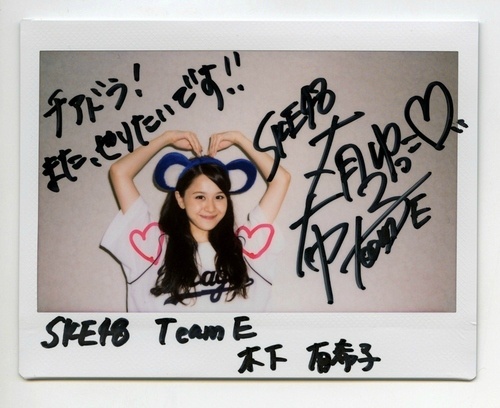 チアドラ!
また、やりたいです!!
SKE48
Team E
SKE48 Team E
木下 有希子